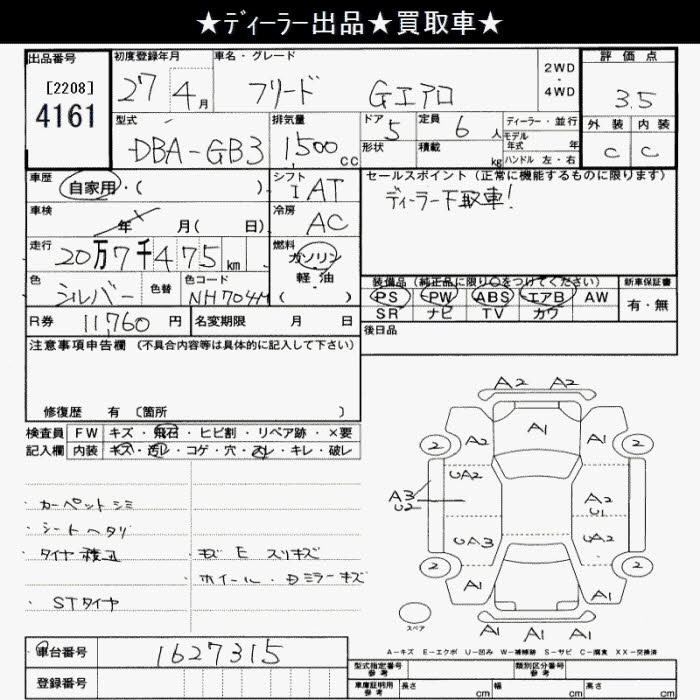 ★ディーラー出品★買取車★
出品番号 初度登録年月 車名・グレード 2WD・4WD 評価点
[2208] 27 4月 フリード Gエアロ 3.5
4161
型式 排気量 ドア 定員 ディーラー・並行 外装 内装
DBA-GB3 1500cc 5 6人 モデル年式 年 C C
形状 積載 kg ハンドル 左・右
車歴 シフト セールスポイント(正常に機能するものに限ります)
自家用・( ) IAT ディーラー下取車!
車検 冷房
年 月( 日) AC
走行 燃料
20万7千475km ガソリン
軽・油
色 色替 色コード ( )
シルバー NH704M
装備品(純正品に限り○をつけてください) 新車保証書
PS PW ABS エアB AW 有・無
SR ナビ TV カワ
R券 11,760円 名変期限 月 日
後日品
注意事項申告欄 (不具合内容等は具体的に記入して下さい)
修復歴 有 〔箇所 〕
検査員 FW キズ・飛石・ヒビ割・リペア跡・×要
記入欄 内装 キズ・汚レ・コゲ・穴・スレ・キレ・破レ
・カーペットシミ
・シートヘタリ
・タイヤ
・キズ E スリキズ
ホイール・ミラーキズ
・STタイヤ
A2 A2
A1
2 A2 A1 2
UA2
A3 U2 A2 U1
UA3 UA2
2 2
A1 A1
A1
スペア
A1 A1 A1
A-キズ E-エクボ U-凹み W-補修跡 S-サビ C-腐食 XX-交換済
車台番号 1627315
登録番号
型式指定番号 参考 類別区分番号 参考
車庫証明用 参考 長さ cm 幅 cm 高さ cm